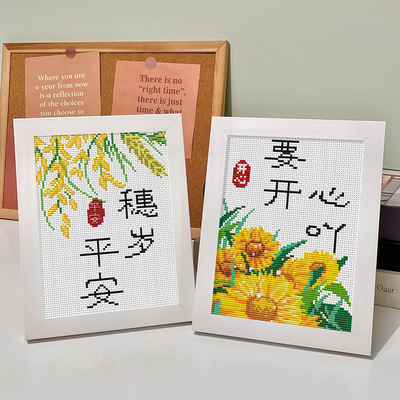 Where you are
a year from now
is a reflection
of the choices
you choose to
There is no
"right time",
there is just
time & what
穗岁
平安
平安
要
开心
吖
开心